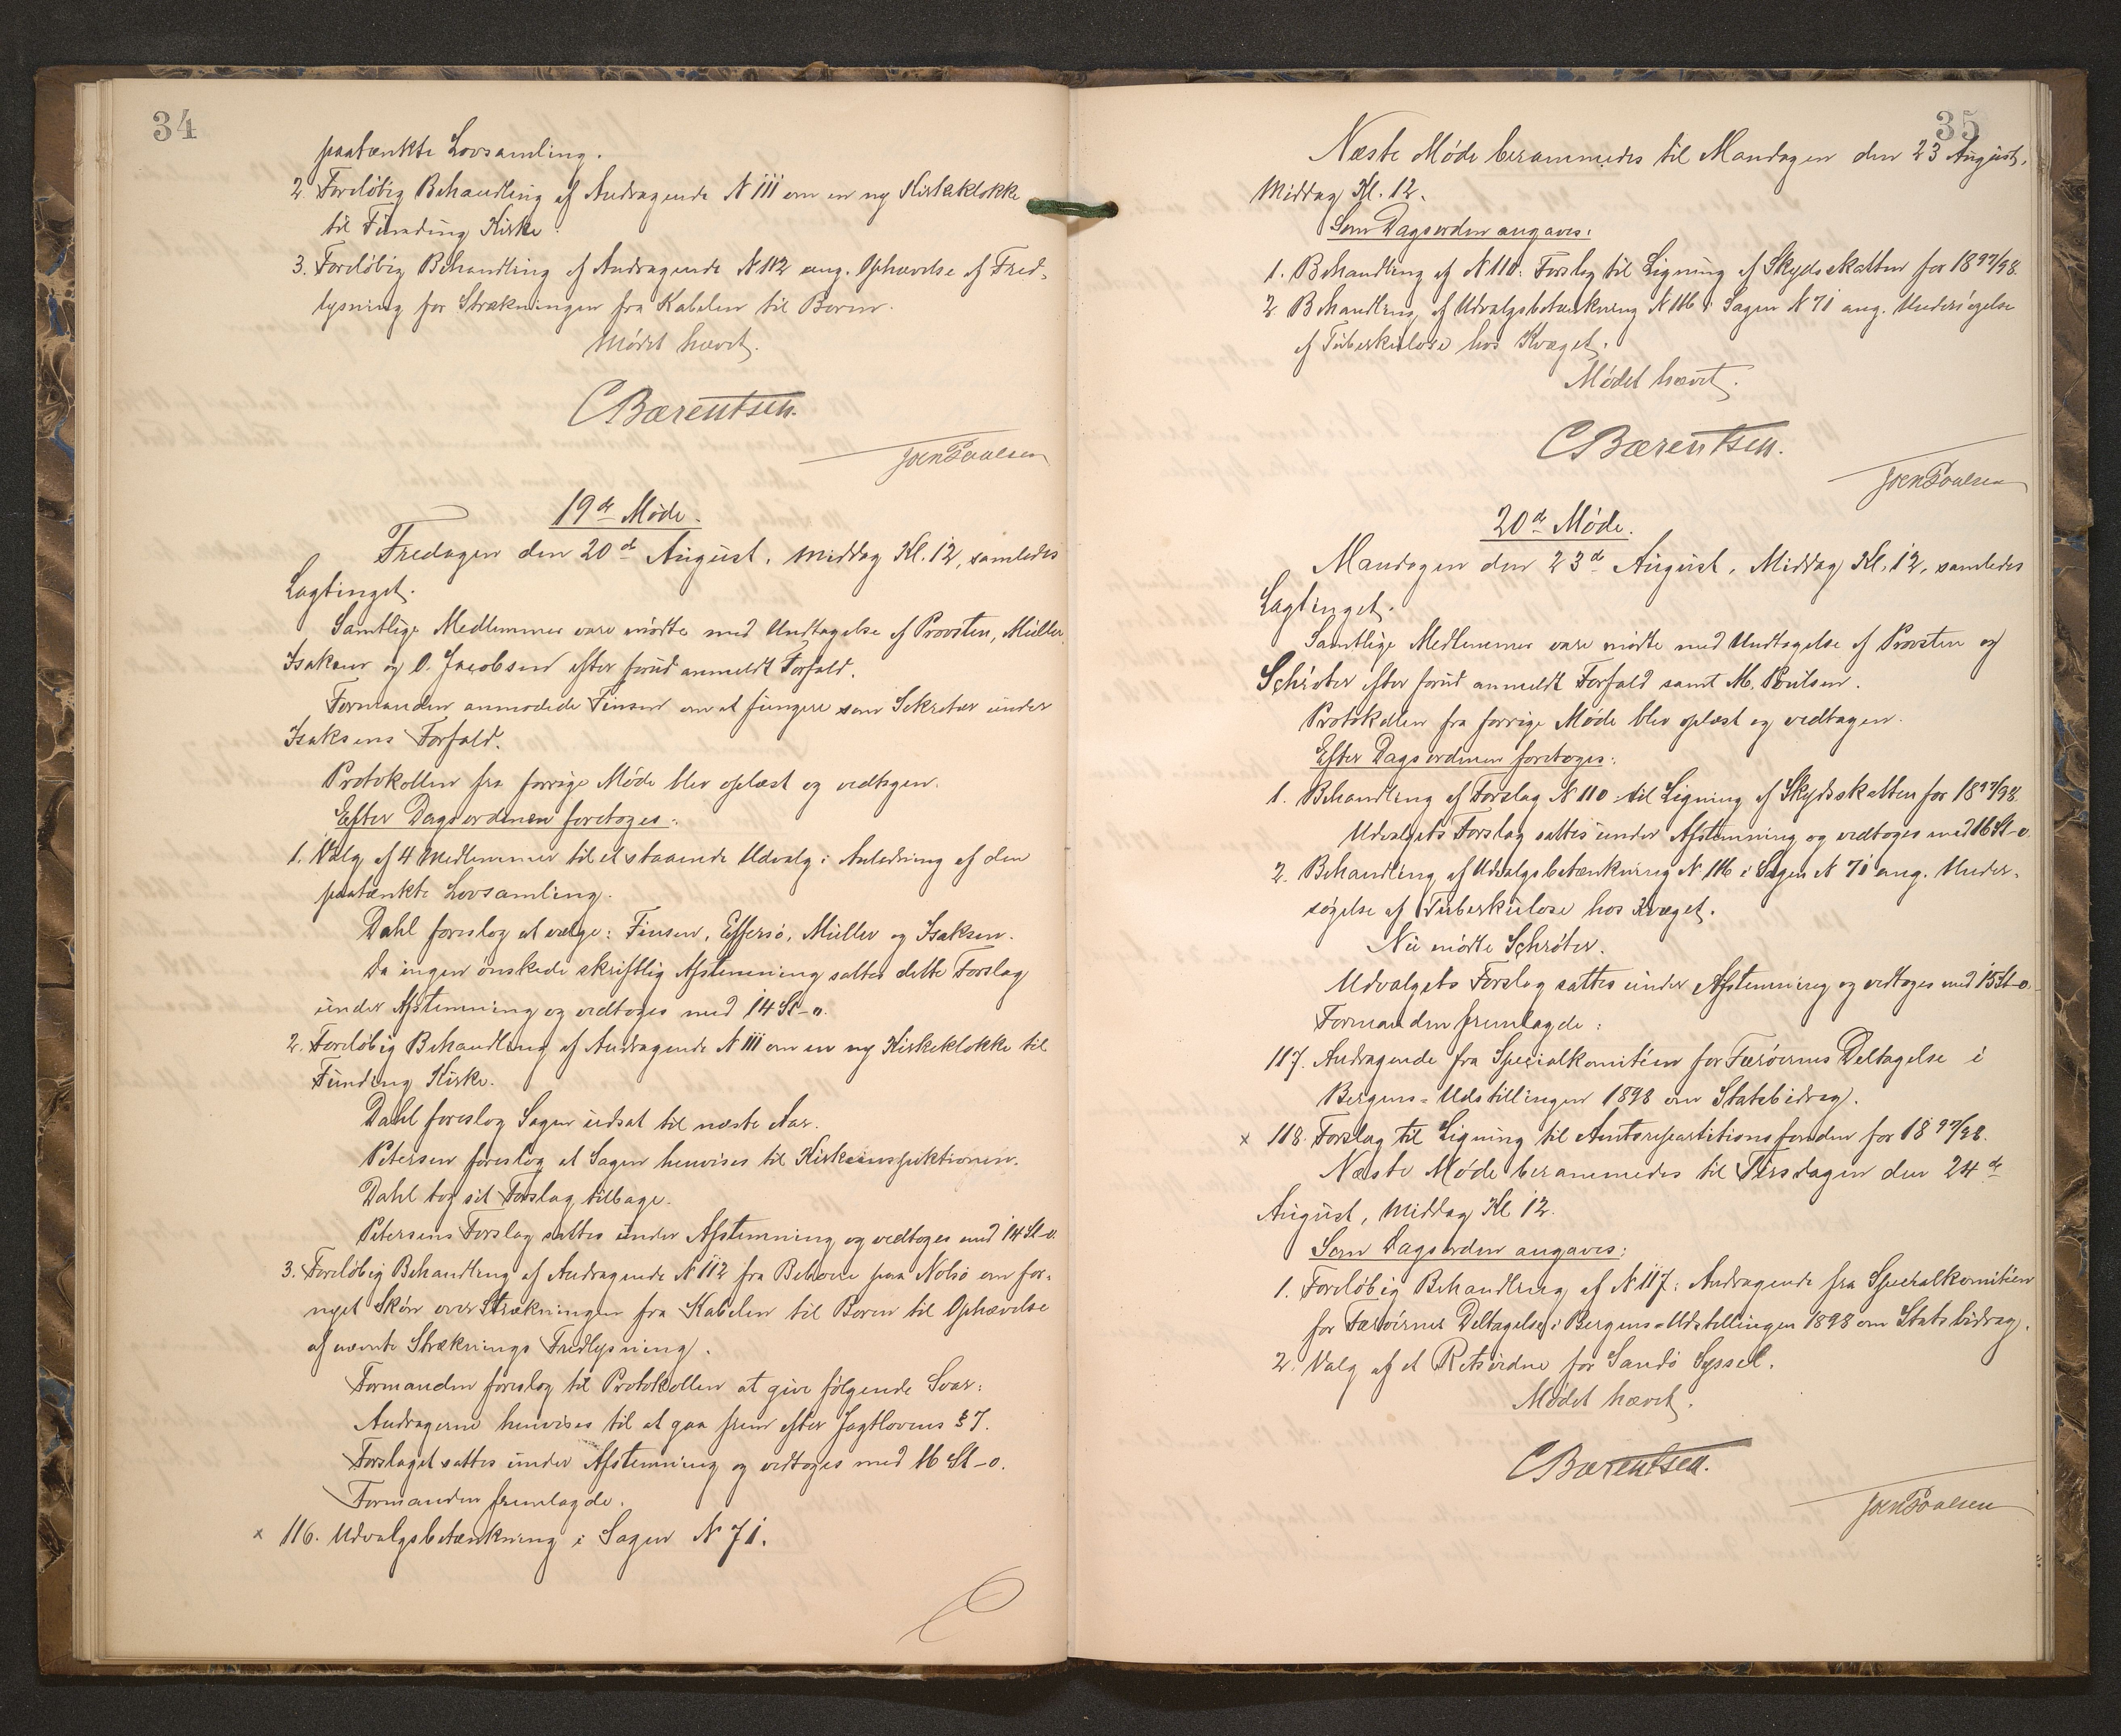 34
paatænkte Lovsamling.
2. Foreløbig Behandling af Andragende N 111 om en ny Kirkeklokke
til Funding Kirke.
3. Foreløbig Behandling af Andragende N 112 ang. Ophævelse af Fred-
lysning for Strækningen fra Kabelen til Boren.
Mødet hævet.
C Bærentsen.
Joen Poulsen
19de Møde.
Fredagen den 20de August, Middag Kl. 12, samledes
Lagtinget.
Samtlige Medlemmer vare mødte med Undtagelse af Provsten, Müller,
Isaksen og O. Jacobsen efter forud anmeldt Forfald.
Formanden anmodede Finsen om at fungere som Sekretær under
Isaksens Forfald.
Protokollen fra forrige Møde blev oplæst og vedtagen.
Efter Dagsordenen foretoges:
1. Valg af 4 Medlemmer til et staaende Udvalg i Anledning af den
paatænkte Lovsamling.
Dahl foreslog at vælge: Finsen, Effersø, Müller og Isaksen.
Da ingen ønskede skriftlig Afstemning sattes dette Forslag
under Afstemning og vedtoges med 14 St-o.
2. Foreløbig Behandling af Andragende N 111 om en ny Kirkeklokke til
Funding Kirke.
Dahl foreslog Sagen udsat til næste Aar.
Petersen foreslog at Sagen henvises til Kirkeinspektionen.
Dahl tog sit Forslag tilbage.
Petersens Forslag sattes under Afstemning og vedtoges med 14 St-o.
3. Foreløbig Behandling af Andragende N 112 fra Beboere paa Nolsø om for-
nyet Skøn over Strækningen fra Kabelen til Boren til Ophævelse
af nævnte Stræknings Fredlysning.
Formanden foreslog til Protokollen at give følgende Svar:
Andragerne henvises til at gaa frem efter Jagtlovens § 7.
Forslaget sattes under Afstemning og vedtoges med 16 St-o.
Formanden fremlagde:
x 116. Udvalgsbetænkning i Sagen N 71.
35
Næste Møde berammedes til Mandagen den 23 August,
Middag Kl. 12.
Som Dagsorden angaves:
1. Behandling af N 110: Forslag til Ligning af Skydsskatten for 1897/98.
2. Behandling af Udvalgsbetænkning N 116 i Sagen N 71 ang. Undersøgelse
af Tuberkulose hos Kvæget.
Mødet hævet.
C Bærentsen.
Joen Poulsen
20de Møde.
Mandagen den 23de August, Middag Kl. 12, samledes
Lagtinget.
Samtlige Medlemmer vare mødte med Undtagelse af Provsten og
Schrøter efter forud anmeldt Forfald samt M. Poulsen.
Protokollen fra forrige Møde blev oplæst og vedtagen.
Efter Dagsordenen foretoges:
1. Behandling af Forslag N 110 til Ligning af Skydsskatten for 1897/98.
Udvalgets Forslag sattes under Afstemning og vedtoges med 16 St-o.
2. Behandling af Udvalgsbetænkning N 116 i Sagen N 71 ang. Under-
søgelse af Tuberkulose hos Kvæget.
Nu mødte Schrøter.
Udvalgets Forslag sattes under Afstemning og vedtoges med 15 St-o.
Formanden fremlagde:
117. Andragende fra Specialkomitéen for Færøernes Deltagelse i
Bergens-Udstillingen 1898 om Statsbidrag.
x 118. Forslag til Ligning til Amtsrepartitionsfonden for 1897/98.
Næste Møde berammedes til Tirsdagen den 24de
August, Middag Kl 12.
Som Dagsorden angaves:
1. Foreløbig Behandling af N 117: Andragende fra Specialkomitéen
for Færøernes Deltagelse i Bergens-Udstillingen 1898 om Statsbidrag.
2. Valg af et Retsvidne for Sandø Syssel.
Mødet hævet.
C Bærentsen.
Joen Poulsen